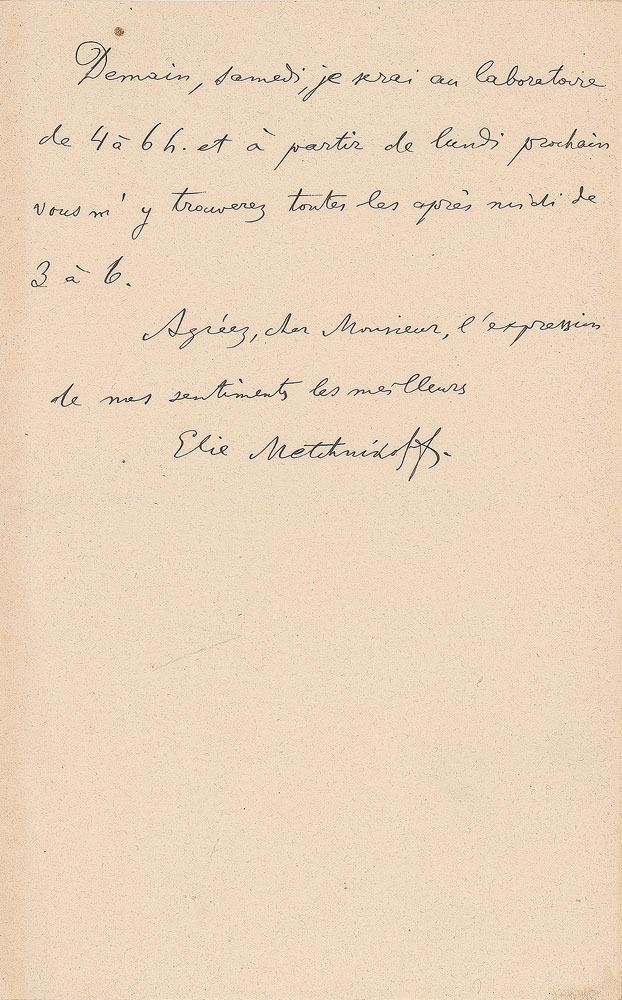 Demain, samedi, je serai au laboratoire
de 4 à 6 h. et à partir de lundi prochain
vous m'y trouverez toutes les après midi de
3 à 6.
Agréez, cher Monsieur, l'expression
de mes sentiments les meilleurs
Elie Metchnikoff.